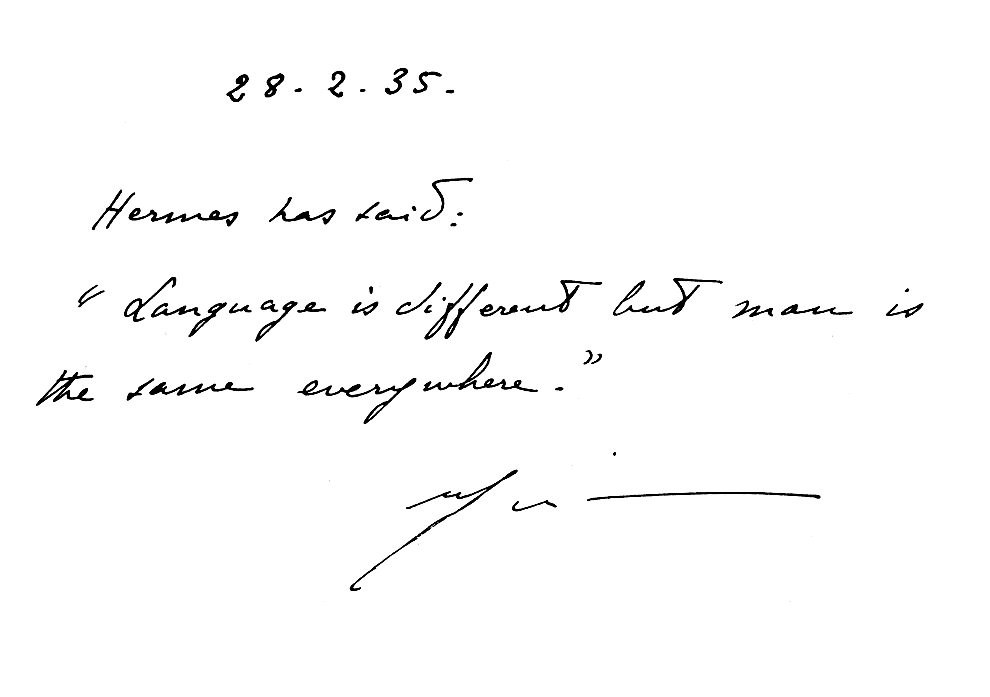 28.2.35.
Hermes has said:
“Language is different but man is
the same everywhere.”